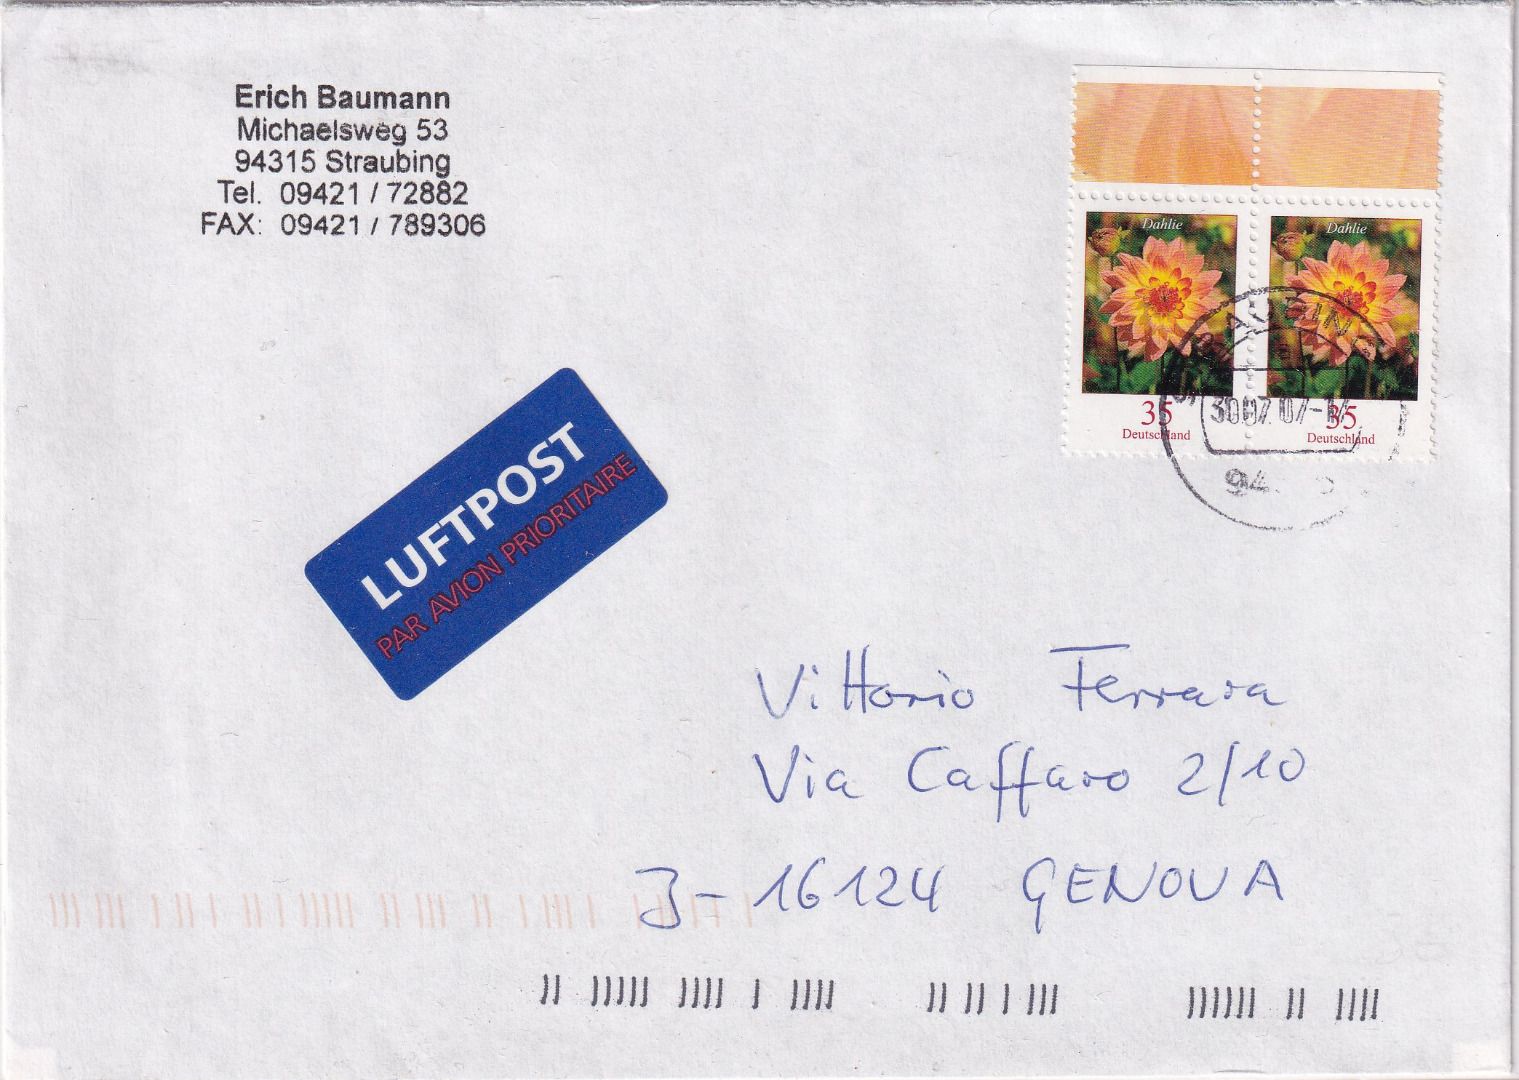 Erich Baumann
Michaelsweg 53
94315 Straubing
Tel. 09421 / 72882
FAX: 09421 / 789306
Dahlie
Dahlie
35
Deutschland
35
Deutschland
LUFTPOST
PAR AVION PRIORITAIRE
Vittorio Ferrara
Via Caffaro 2/10
I-16124 GENOVA